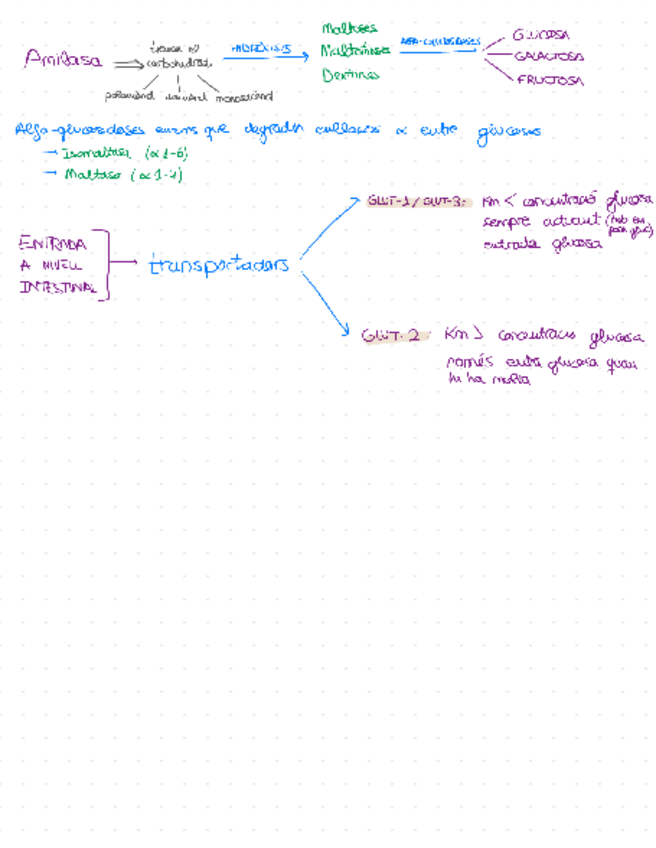 Amilasa
trenca el
carbohidrat
polisacàrid disacàrid monosacàrid
HIDRÒLISIS
Maltoses
Maltotrioses
Dextrines
ALFA-GLUCOSIDASES
GLUCOSA
GALACTOSA
FRUCTOSA
Alfa-glucosidases enzims que degraden enllaços α entre glucoses
→ Isomaltasa (α 1-6)
→ Maltasa (α 1-4)
ENTRADA
A NIVELL
INTESTINAL
transportadors
GLUT-1 / GLUT-3: Km < concentració glucosa
sempre activant (tot i
poca gluc)
entrada glucosa
GLUT-2: Km > concentració glucosa
només entra glucosa quan
hi ha molta